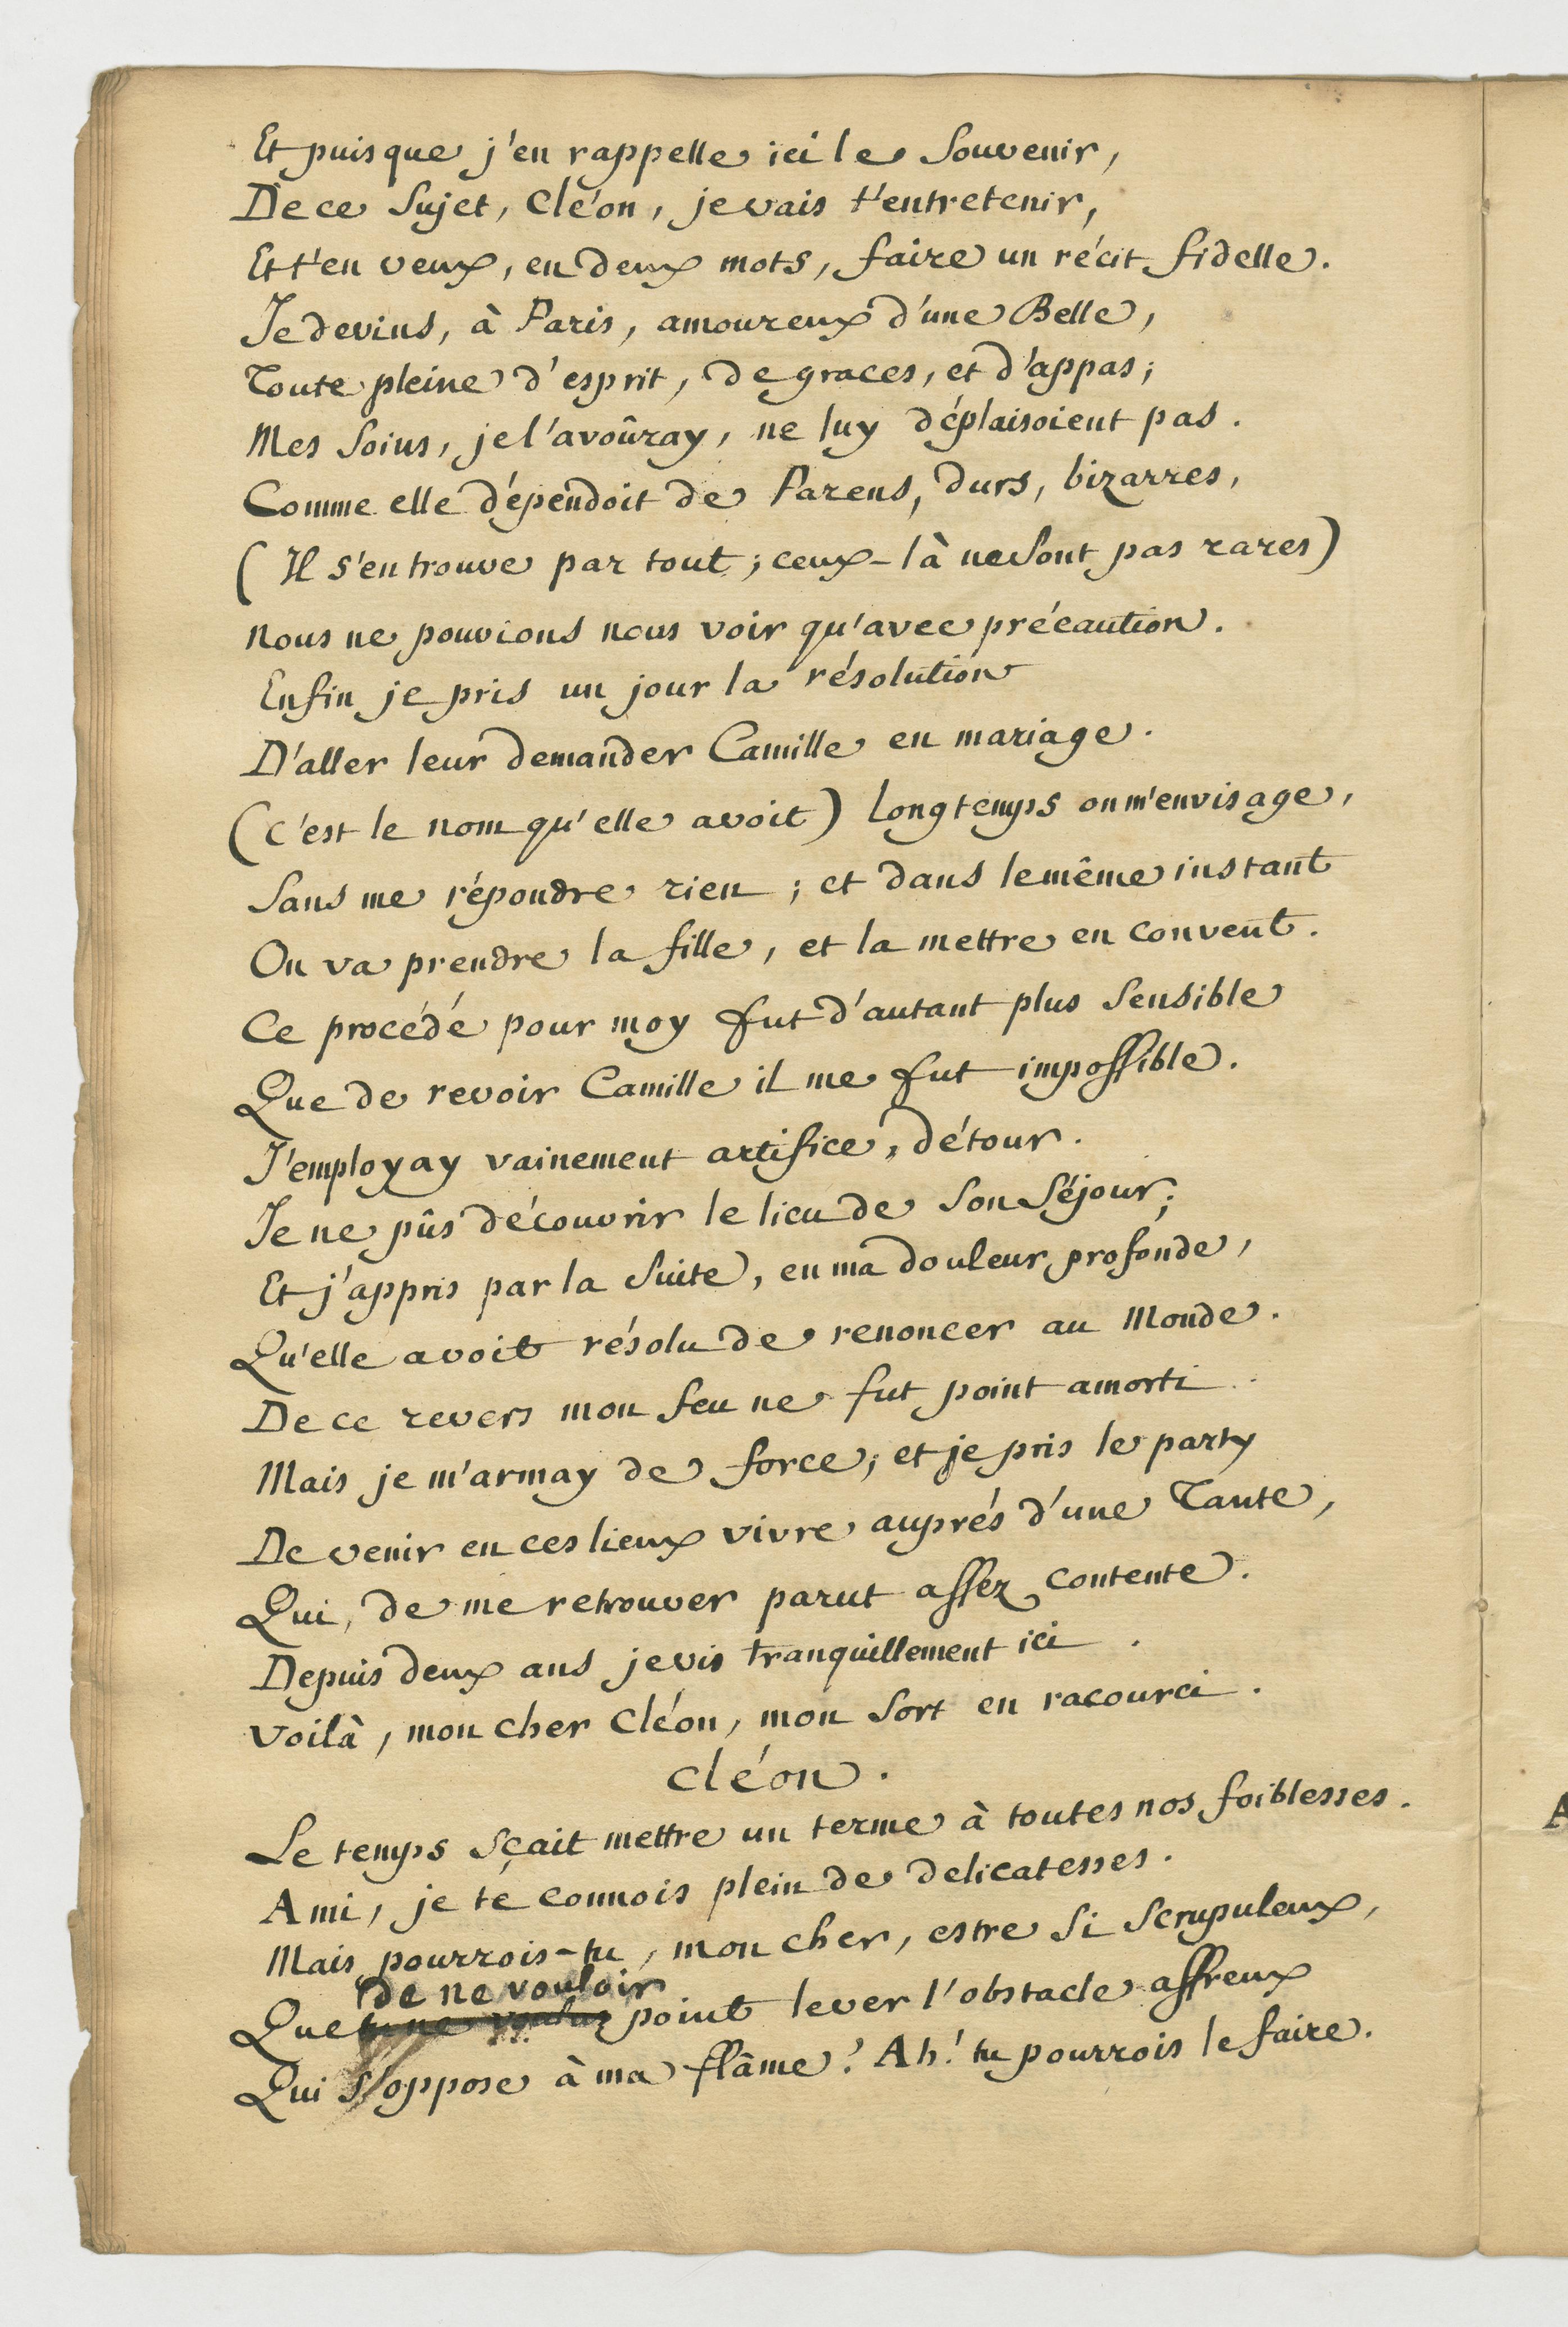 Et puisque j'en rappelle ici le Souvenir,
De ce Sujet, Cléon, je vais t'entretenir,
Et t'en veux, en deux mots, faire un récit fidelle.
Je devins, à Paris, amoureux d'une Belle,
Toute pleine d'esprit, de graces, et d'appas;
Mes Soins, je l'avoûray, ne luy déplaisoient pas.
Comme elle dépendoit de Parens, durs, bizarres,
(Il s'en trouve par tout; ceux-là ne Sont pas rares)
Nous ne pouvions nous voir qu'avec précaution.
Enfin je pris un jour la résolution
D'aller leur demander Camille en mariage.
(C'est le nom qu'elle avoit) Longtemps on m'envisage,
Sans me répondre rien; et dans le même instant
On va prendre la fille, et la mettre en convent.
Ce procédé pour moy fut d'autant plus Sensible
Que de revoir Camille il me fut impossible.
J'employay vainement artifice, détour.
Je ne pûs découvrir le lieu de Son Séjour;
Et j'appris par la Suite, en ma douleur profonde,
Qu'elle avoit résolu de renoncer au Monde.
De ce revers mon feu ne fut point amorti.
Mais je m'armay de force; et je pris le party
De venir en ces lieux vivre auprés d'une Tante,
Qui, de me retrouver parut assez contente.
Depuis deux ans je vis tranquillement ici.
Voilà, mon cher Cléon, mon Sort en racourci.
Cléon.
Le temps sçait mettre un terme à toutes nos foiblesses.
Ami, je te connois plein de delicatesses.
Mais pourrois-tu, mon cher, estre Si Scrupuleux,
de ne vouloir
Que tu ne veulus point lever l'obstacle affreux
Qui S'oppose à ma flâme? Ah! tu pourrois le faire.
A